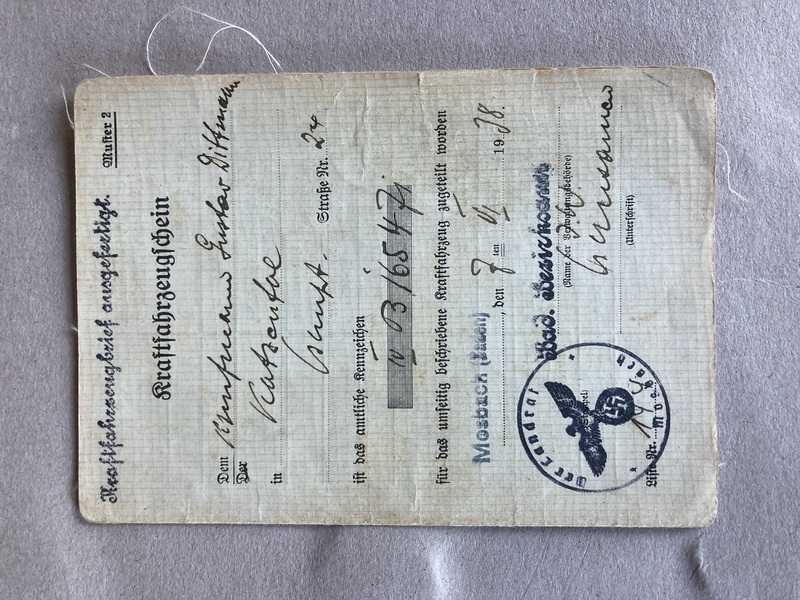 Kraftfahrzeugbrief ausgefertigt.
Muster 2
Kraftfahrzeugschein
Dem Kaufmann Gustav Dittmann
Der
in Katzental
Haupt. Straße Nr. 24
ist das amtliche Kennzeichen
IV B 16547.
für das umseitig beschriebene Kraftfahrzeug zugeteilt worden
Mosbach (Baden), den 7ten VI 1938.
Bad. Bezirksamt
(Name der Verwaltungsbehörde)
(Unterschrift)
Der Landrat
Mosbach
Liste Nr.